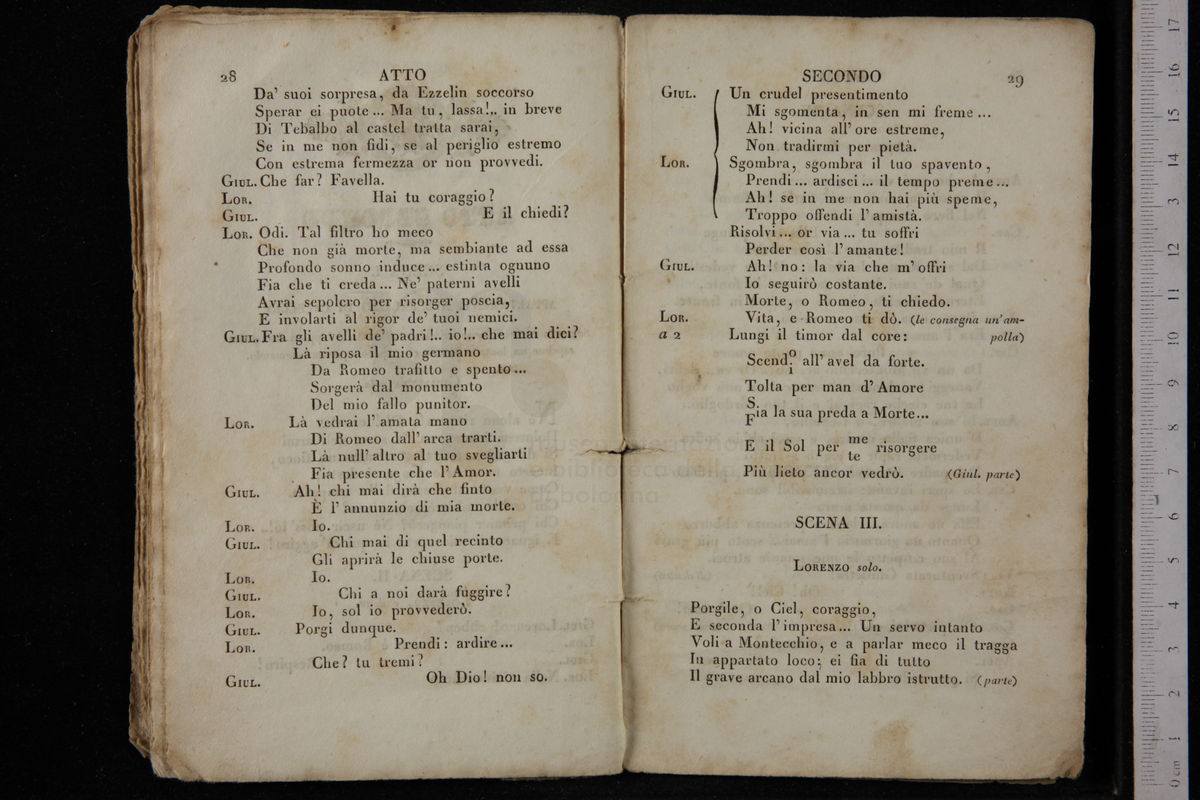 28 ATTO
Da' suoi sorpresa, da Ezzelin soccorso
Sperar ei puote ... Ma tu, lassa!.. in breve
Di Tebalbo al castel tratta sarai,
Se in me non fidi, se al periglio estremo
Con estrema fermezza or non provvedi.
GIUL. Che far? Favella.
LOR. Hai tu coraggio?
GIUL. E il chiedi?
LOR. Odi. Tal filtro ho meco
Che non già morte, ma sembiante ad essa
Profondo sonno induce ... estinta ognuno
Fia che ti creda ... Ne' paterni avelli
Avrai sepolcro per risorger poscia,
E involarti al rigor de' tuoi nemici.
GIUL. Fra gli avelli de' padri!.. io!.. che mai dici?
Là riposa il mio germano
Da Romeo trafitto e spento ...
Sorgerà dal monumento
Del mio fallo punitor.
LOR. Là vedrai l'amata mano
Di Romeo dall'arca trarti.
Là null'altro al tuo svegliarti
Fia presente che l'Amor.
GIUL. Ah! chi mai dirà che finto
È l'annunzio di mia morte.
LOR. Io.
GIUL. Chi mai di quel recinto
Gli aprirà le chiuse porte.
LOR. Io.
GIUL. Chi a noi darà fuggire?
LOR. Io, sol io provvederò.
GIUL. Porgi dunque.
LOR. Prendi: ardire ...
Che? tu tremi?
GIUL. Oh Dio! non so.
SECONDO 29
GIUL. Un crudel presentimento
Mi sgomenta, in sen mi freme ...
Ah! vicina all'ore estreme,
Non tradirmi per pietà.
LOR. Sgombra, sgombra il tuo spavento,
Prendi ... ardisci ... il tempo preme ...
Ah! se in me non hai più speme,
Troppo offendi l'amistà.
Risolvi ... or via ... tu soffri
Perder così l'amante!
GIUL. Ah! no: la via che m'offri
Io seguirò costante.
Morte, o Romeo, ti chiedo.
LOR. Vita, e Romeo ti dò. (le consegna un'am-
a 2 Lungi il timor dal core: polla)
Scend o. i all'avel da forte.
Tolta per man d'Amore
S. F ia la sua preda a Morte...
E il Sol per me te risorgere
Più lieto ancor vedrò. (Giul. parte)
SCENA III.
LORENZO solo.
Porgile, o Ciel, coraggio,
E seconda l'impresa ... Un servo intanto
Voli a Montecchio, e a parlar meco il tragga
In appartato loco; ei fia di tutto
Il grave arcano dal mio labbro istrutto. (parte)
museo
biblioteca della
bologna
0 cm 1 2 3 4 5 6 7 8 9 10 11 12 13 14 15 16 17